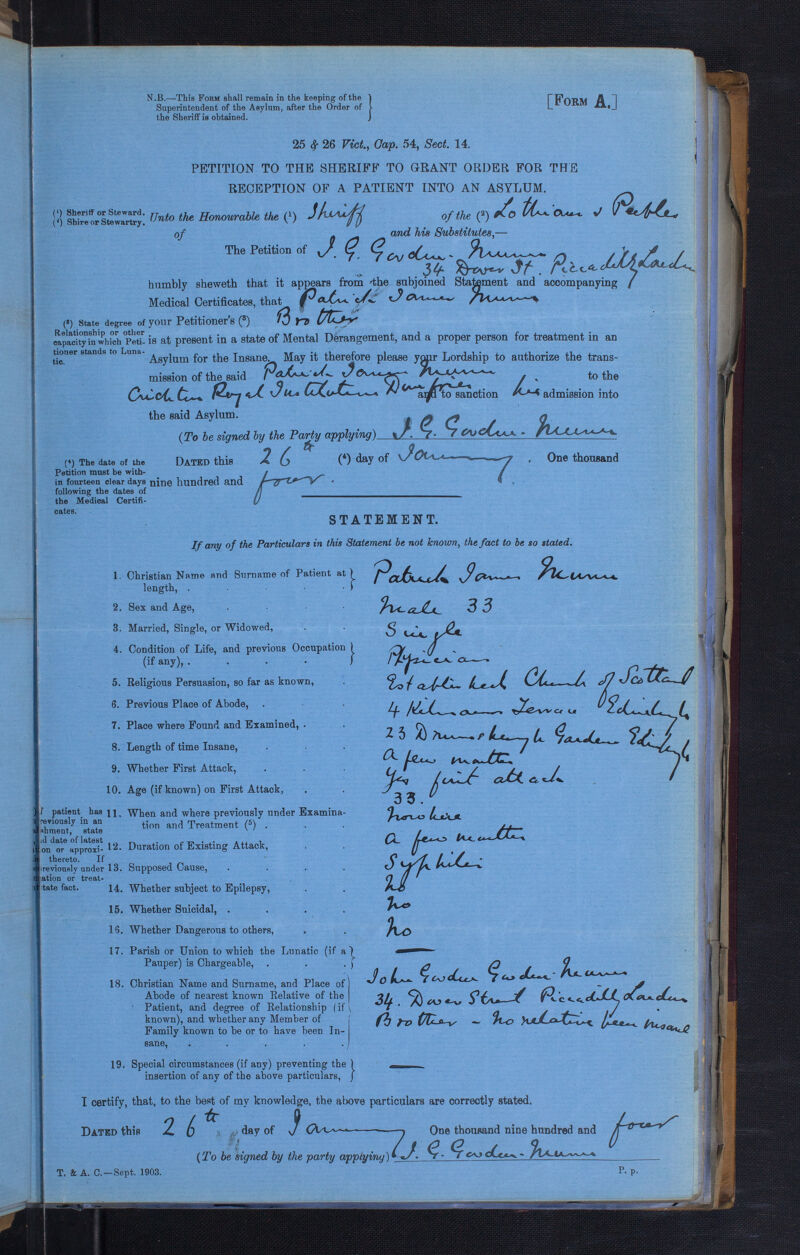 N.B.—This Form shall remain in the keeping of the
Superintendent of the Asylum, after the Order of
the Sheriff is obtained.
[Form A.]
25 & 26 Vict., Cap. 54, Sect. 14.
PETITION TO THE SHERIFF TO GRANT ORDER FOR THE
RECEPTION OF A PATIENT INTO AN ASYLUM.
(¹) Sheriff or Steward.
(²) Shire or Stewartry.
Unto the Honourable the (¹) Sheriff of the (²) Lothians & Peebles
of and his Substitutes,—
The Petition of J. G. Gordon-Munn
34 Dover St. Piccadilly London
humbly sheweth that it appears from the subjoined Statement and accompanying
Medical Certificates, that Patrick James Munn
(³) State degree of
Relationship or other
capacity in which Peti-
tioner stands to Luna-
tic.
your Petitioner's (³) Brother
is at present in a state of Mental Derangement, and a proper person for treatment in an
Asylum for the Insane. May it therefore please your Lordship to authorize the trans-
mission of the said Patrick James Munn to the
Crichton Royal Institution Dumfries and to sanction his admission into
the said Asylum.
(To be signed by the Party applying) J. G. Gordon-Munn
(⁴) The date of the
Petition must be with-
in fourteen clear days
following the dates of
the Medical Certifi-
cates.
Dated this 26th (⁴) day of January. One thousand
nine hundred and four.
STATEMENT.
If any of the Particulars in this Statement be not known, the fact to be so stated.
1. Christian Name and Surname of Patient at
length, . Patrick James Munn
2. Sex and Age, Male 33
3. Married, Single, or Widowed, Single
4. Condition of Life, and previous Occupation
(if any), . Physician
5. Religious Persuasion, so far as known, Established Church of Scotland
6. Previous Place of Abode, . 4 Terrace Edinburgh
7. Place where Found and Examined, . 23 Drumsheugh Gardens Edinburgh
8. Length of time Insane, A few months
9. Whether First Attack, Yes first attack
10. Age (if known) on First Attack, 33.
f patient has
reviously in an
shment, state
d date of latest
on or approxi-
thereto. If
reviously under
ation or treat-
tate fact.
11. When and where previously under Examina-
tion and Treatment (⁵) . Nowhere
12. Duration of Existing Attack, A few months
13. Supposed Cause, Syphilis
14. Whether subject to Epilepsy, No
15. Whether Suicidal, . No
16. Whether Dangerous to others, No
17. Parish or Union to which the Lunatic (if a
Pauper) is Chargeable, . —
18. Christian Name and Surname, and Place of
Abode of nearest known Relative of the
Patient, and degree of Relationship (if
known), and whether any Member of
Family known to be or to have been In-
sane, .
John Gordon Gordon-Munn
34. Dover Street Piccadilly London
Brother - no relative been insane
19. Special circumstances (if any) preventing the
insertion of any of the above particulars, —
I certify, that, to the best of my knowledge, the above particulars are correctly stated.
Dated this 26th day of January One thousand nine hundred and four
(To be signed by the party applying) J. G. Gordon-Munn
T. & A. C.—Sept. 1903.
P. p.